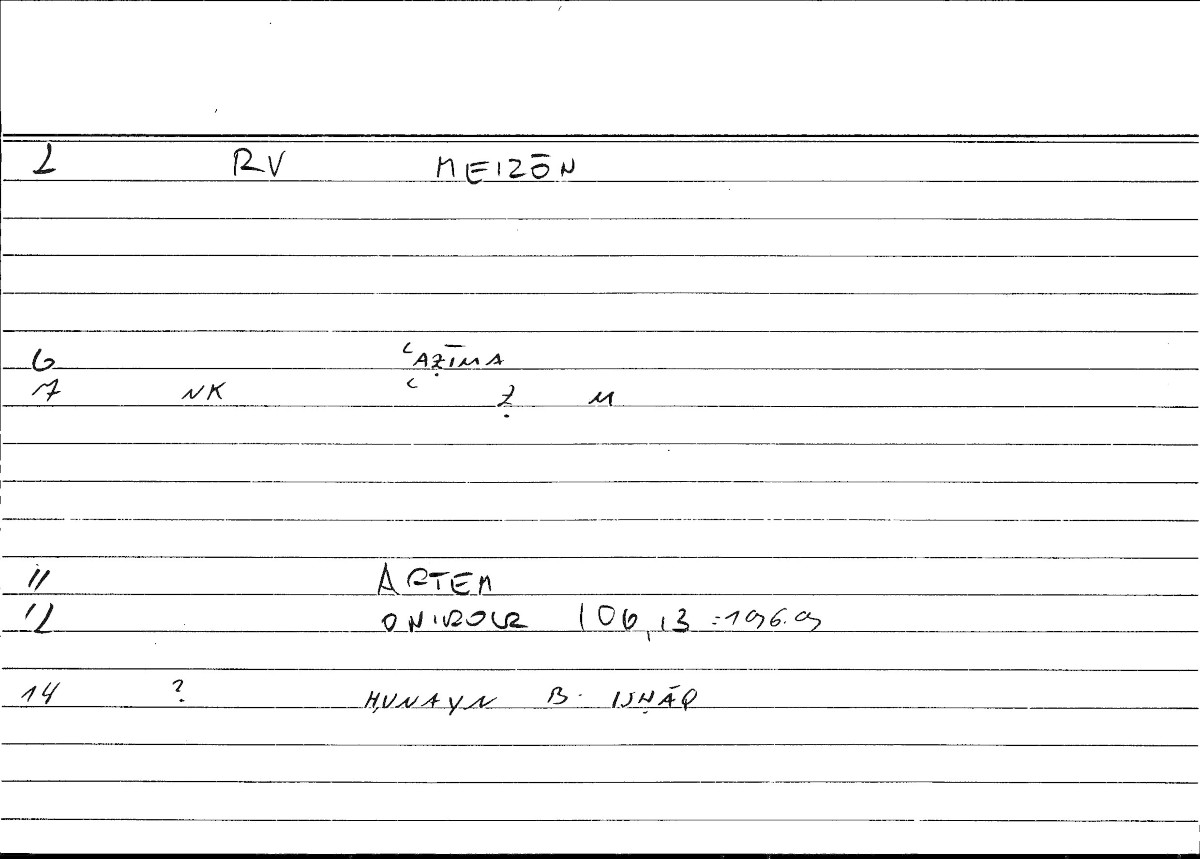 2 RV MEIZŌN
6 ʿAẒĪMA
7 NK ʿ Ẓ M
11 ARTEM
12 ONIROCR 106,13 = 196.9
14 ? ḤUNAYN B. ISḤĀQ